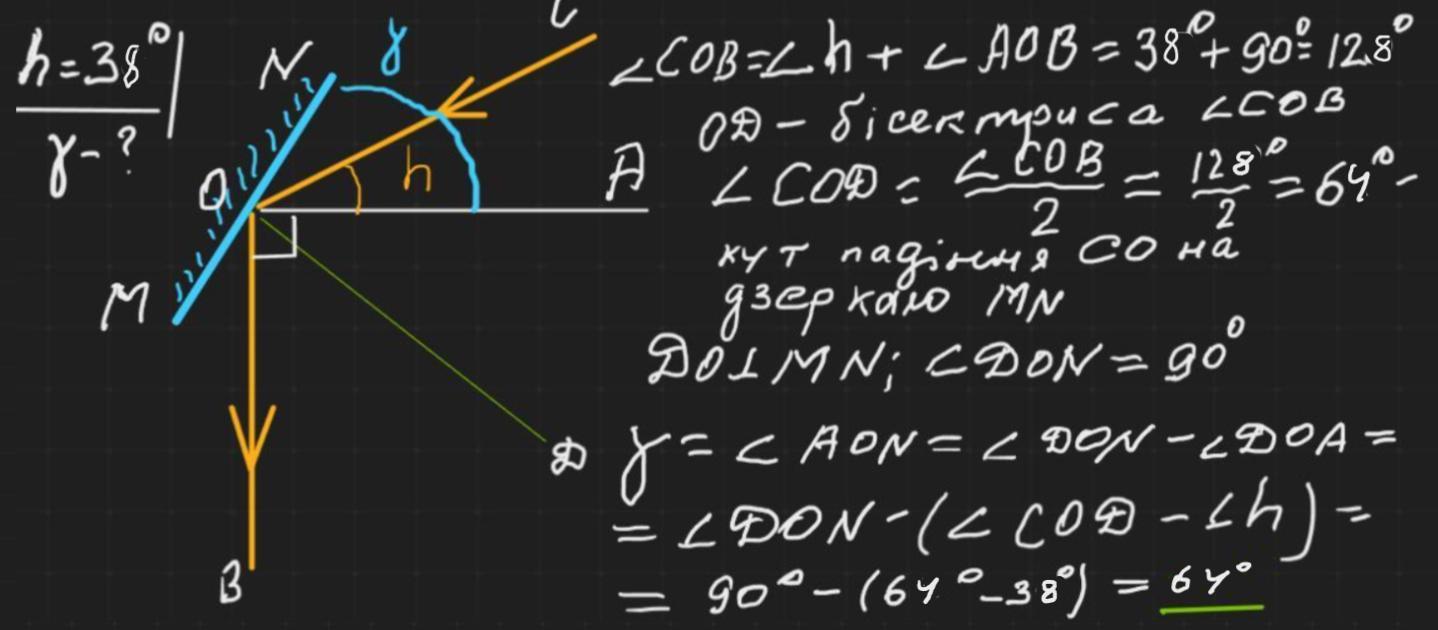 h=38°
γ-?
N
γ
C
O
h
A
M
B
D
∠COB=∠h+∠AOB=38°+90°=128°
OD - бісектриса ∠COB
∠COD = ∠COB/2 = 128°/2 = 64° -
кут падіння CO на
дзеркало MN
DO⊥MN; ∠DON = 90°
γ = ∠AON = ∠DON - ∠DOA =
= ∠DON - (∠COD - ∠h) =
= 90° - (64° - 38°) = 64°